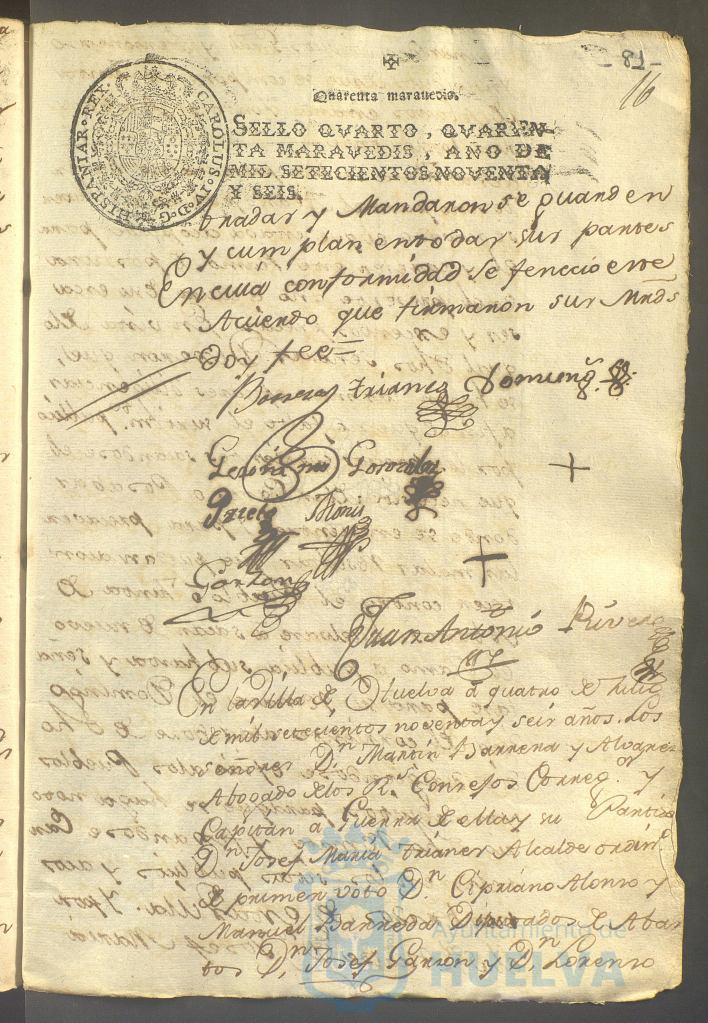 -81-
16
Quarenta maravedis.
SELLO QVARTO, QVAREN-
TA MARAVEDIS, AÑO DE
MIL SETECIENTOS NOVENTA
Y SEIS.
CAROLUS·IV·D·G·HISPANIAR·REX·
y Mandaron se guarden
y cumplan en todas sus partes
En cuia conformidad se fenecio este
Acuerdo que firmaron sus Mrds
Doy fee=
Barrera Trianes Doming.
Geronimo Gonzalez
Prieto Alonso
Garzon
Juan Antonio Rivera
En la Villa de Huelva á quatro de Julio
de mil setecientos noventa y seis años. Los
señores Dn Martin Barrera y Alvarez
Abogado de los Rs Consejos Correg.or y
Capitan á Guerra de ella y su Partido
Dn Josef Maria Trianes Alcalde ordin.
de primer voto Dn Cipriano Alonso y
Manuel Barreda Diputados de Abas
tos Dn Josef Garzon y Dn Lorenzo
Ayuntamiento de
HUELVA